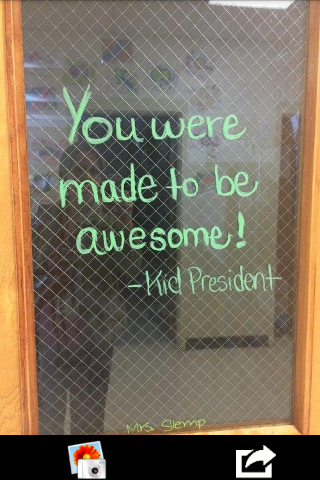 You were
made to be
awesome!
-Kid President
Mrs. Slemp